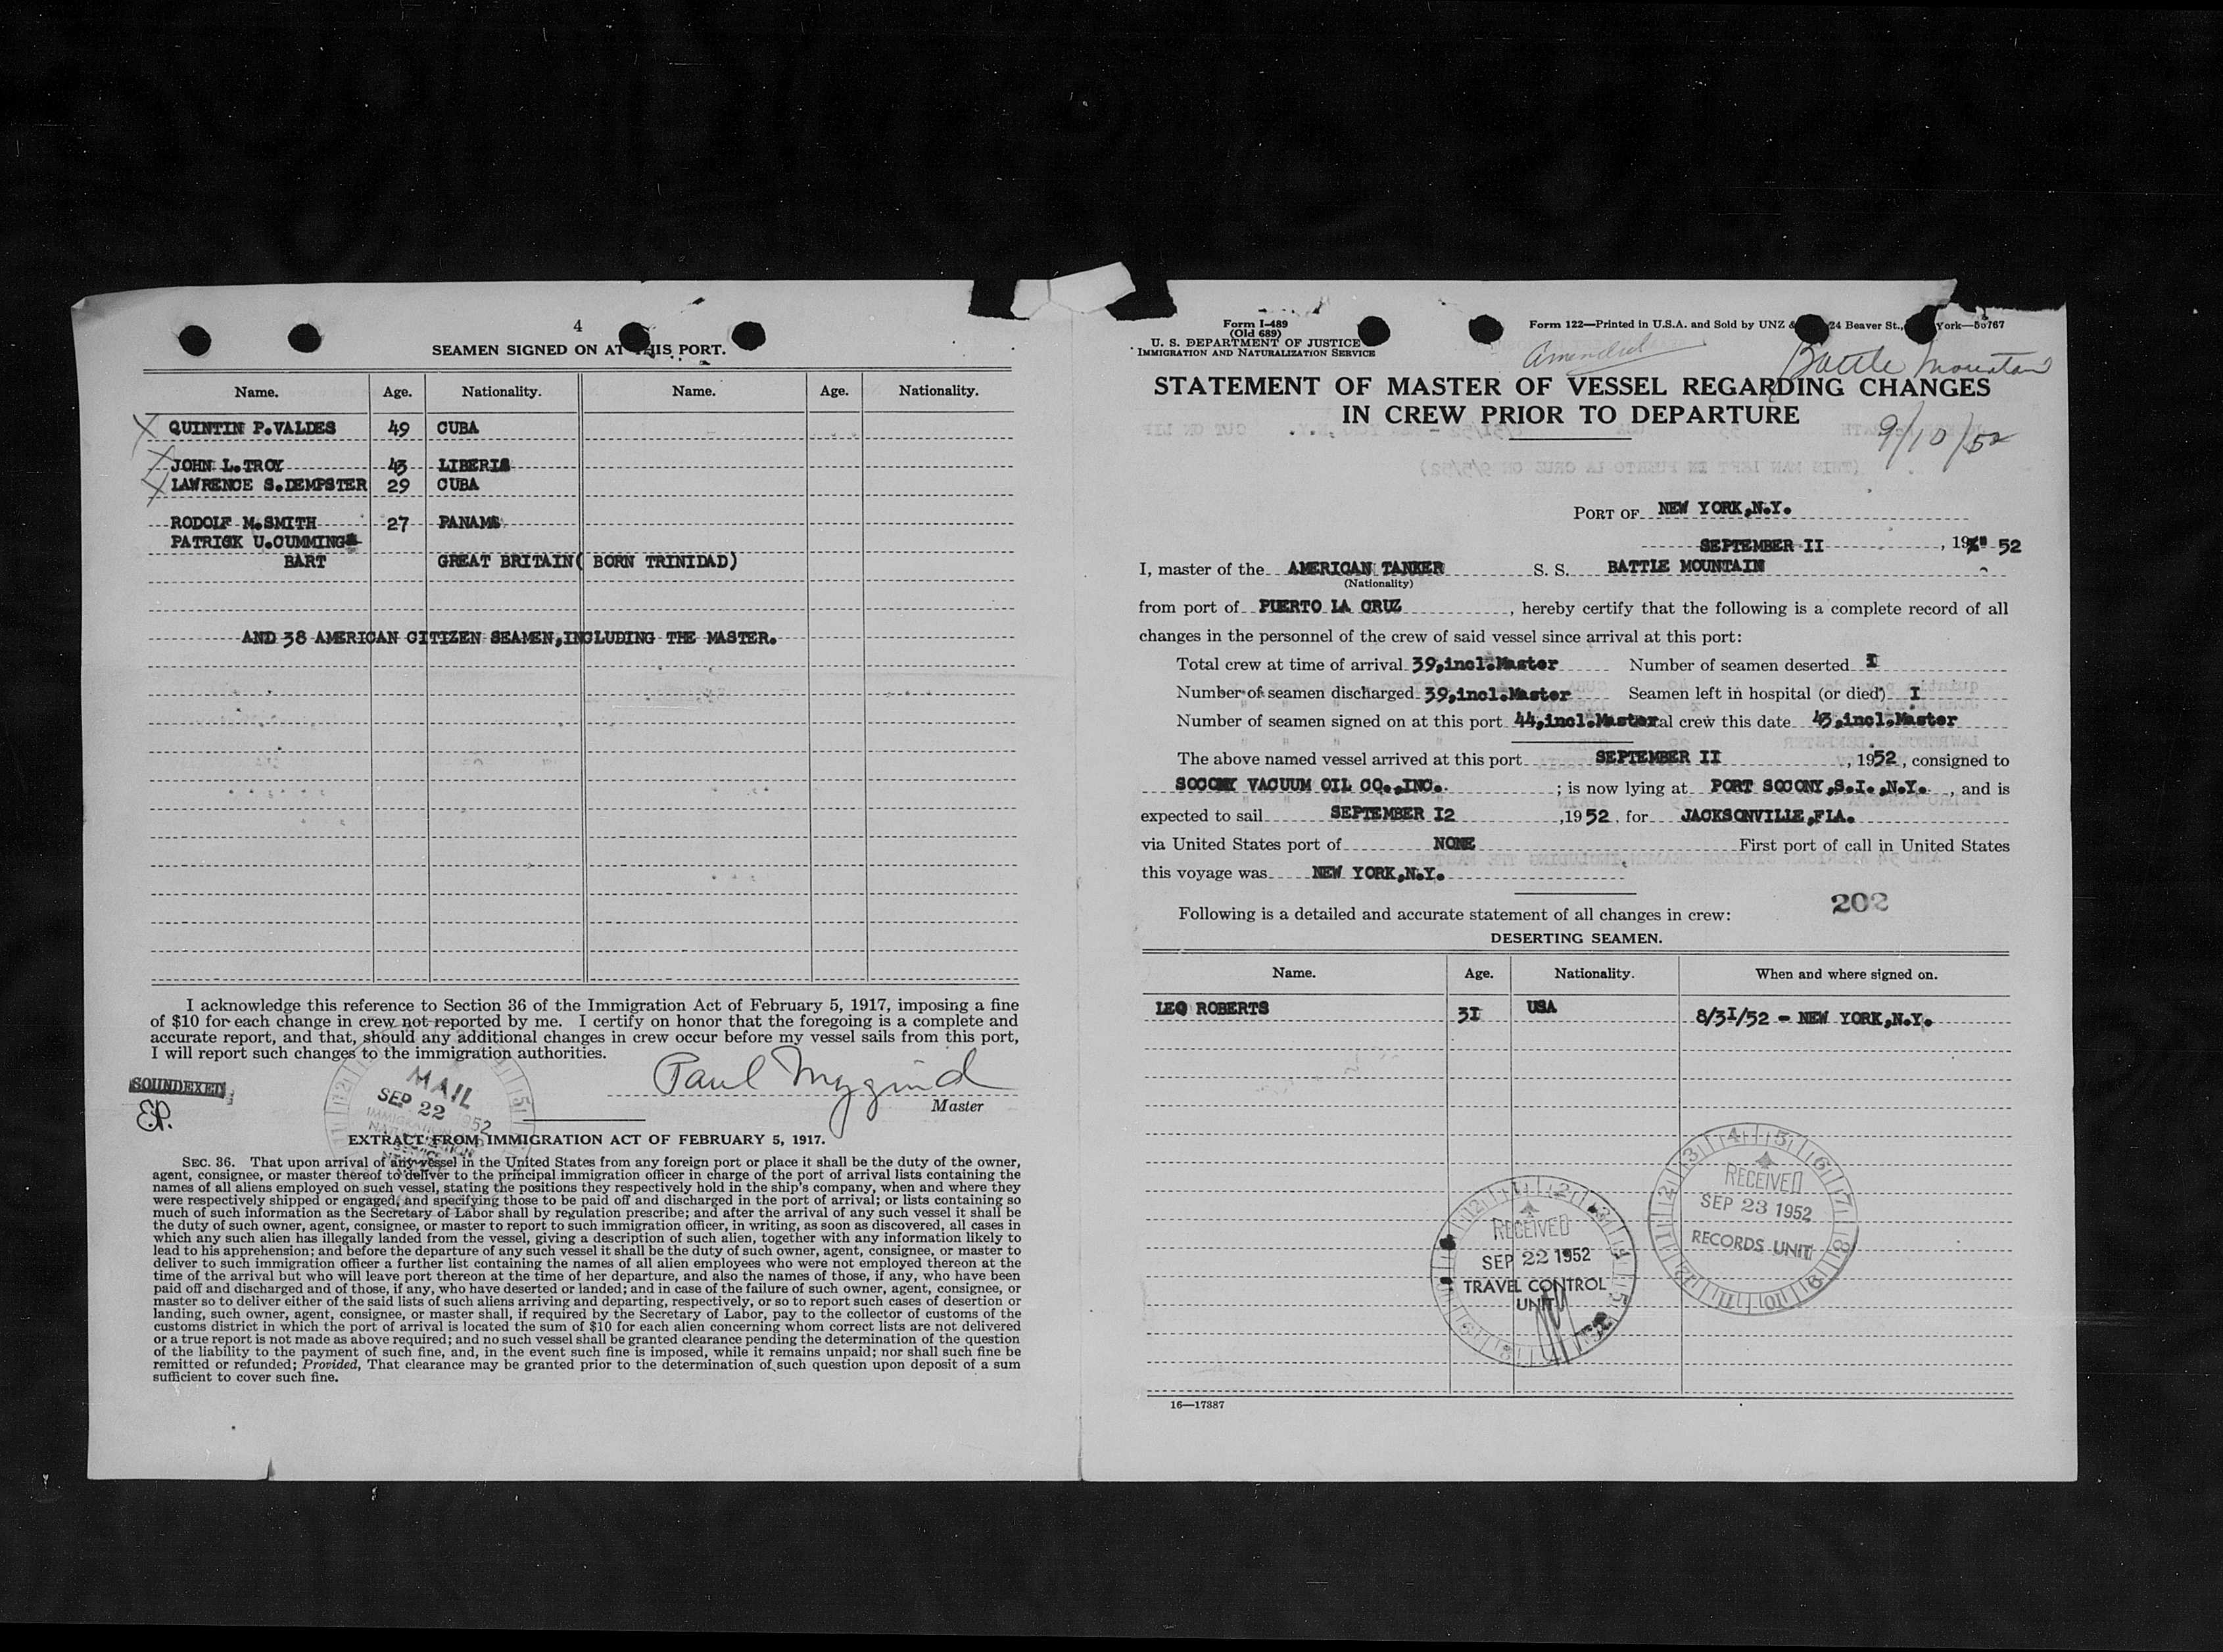 4
SEAMEN SIGNED ON AT THIS PORT.
Name. Age. Nationality. Name. Age. Nationality.
QUINTIN P.VALDES 49 CUBA
JOHN L.TROY 43 LIBERIA
LAWRENCE S.DEMPSTER 29 CUBA
RODOLF M.SMITH 27 PANAMA
PATRICK U.CUMMING
BART GREAT BRITAIN( BORN TRINIDAD)
AND 38 AMERICAN CITIZEN SEAMEN,INCLUDING THE MASTER.
I acknowledge this reference to Section 36 of the Immigration Act of February 5, 1917, imposing a fine
of $10 for each change in crew not reported by me. I certify on honor that the foregoing is a complete and
accurate report, and that, should any additional changes in crew occur before my vessel sails from this port,
I will report such changes to the immigration authorities.
Paul Mygind
Master
SOUNDEXED
E.P.
MAIL
SEP 22 1952
EXTRACT FROM IMMIGRATION ACT OF FEBRUARY 5, 1917.
SEC. 36. That upon arrival of any vessel in the United States from any foreign port or place it shall be the duty of the owner,
agent, consignee, or master thereof to deliver to the principal immigration officer in charge of the port of arrival lists containing the
names of all aliens employed on such vessel, stating the positions they respectively hold in the ship's company, when and where they
were respectively shipped or engaged, and specifying those to be paid off and discharged in the port of arrival; or lists containing so
much of such information as the Secretary of Labor shall by regulation prescribe; and after the arrival of any such vessel it shall be
the duty of such owner, agent, consignee, or master to report to such immigration officer, in writing, as soon as discovered, all cases in
which any such alien has illegally landed from the vessel, giving a description of such alien, together with any information likely to
lead to his apprehension; and before the departure of any such vessel it shall be the duty of such owner, agent, consignee, or master to
deliver to such immigration officer a further list containing the names of all alien employees who were not employed thereon at the
time of the arrival but who will leave port thereon at the time of her departure, and also the names of those, if any, who have been
paid off and discharged and of those, if any, who have deserted or landed; and in case of the failure of such owner, agent, consignee, or
master so to deliver either of the said lists of such aliens arriving and departing, respectively, or so to report such cases of desertion or
landing, such owner, agent, consignee, or master shall, if required by the Secretary of Labor, pay to the collector of customs of the
customs district in which the port of arrival is located the sum of $10 for each alien concerning whom correct lists are not delivered
or a true report is not made as above required; and no such vessel shall be granted clearance pending the determination of the question
of the liability to the payment of such fine, and, in the event such fine is imposed, while it remains unpaid; nor shall such fine be
remitted or refunded; Provided, That clearance may be granted prior to the determination of such question upon deposit of a sum
sufficient to cover such fine.
Form I-489
(Old 689)
U. S. DEPARTMENT OF JUSTICE
IMMIGRATION AND NATURALIZATION SERVICE
Form 122—Printed in U.S.A. and Sold by UNZ & 24 Beaver St., York—
Amended
Battle Mountain
STATEMENT OF MASTER OF VESSEL REGARDING CHANGES
IN CREW PRIOR TO DEPARTURE
9/10/52
PORT OF NEW YORK,N.Y.
SEPTEMBER II , 19 52
I, master of the AMERICAN TANKER S. S. BATTLE MOUNTAIN
(Nationality)
from port of PUERTO LA CRUZ , hereby certify that the following is a complete record of all
changes in the personnel of the crew of said vessel since arrival at this port:
Total crew at time of arrival 39,incl.Master Number of seamen deserted I
Number of seamen discharged 39,incl.Master Seamen left in hospital (or died) I
Number of seamen signed on at this port 44,incl.Master al crew this date 43,incl.Master
The above named vessel arrived at this port SEPTEMBER II , 1952, consigned to
SOCONY VACUUM OIL CO.,INC. ; is now lying at PORT SOCONY,S.I.,N.Y. , and is
expected to sail SEPTEMBER I2 ,1952. for JACKSONVILLE,FLA.
via United States port of NONE First port of call in United States
this voyage was NEW YORK,N.Y.
202
Following is a detailed and accurate statement of all changes in crew:
DESERTING SEAMEN.
Name. Age. Nationality. When and where signed on.
LEO ROBERTS 3I USA 8/3I/52 - NEW YORK,N.Y.
RECEIVED
SEP 22 1952
TRAVEL CONTROL
UNIT
RECEIVED
SEP 23 1952
RECORDS UNIT
16—17387